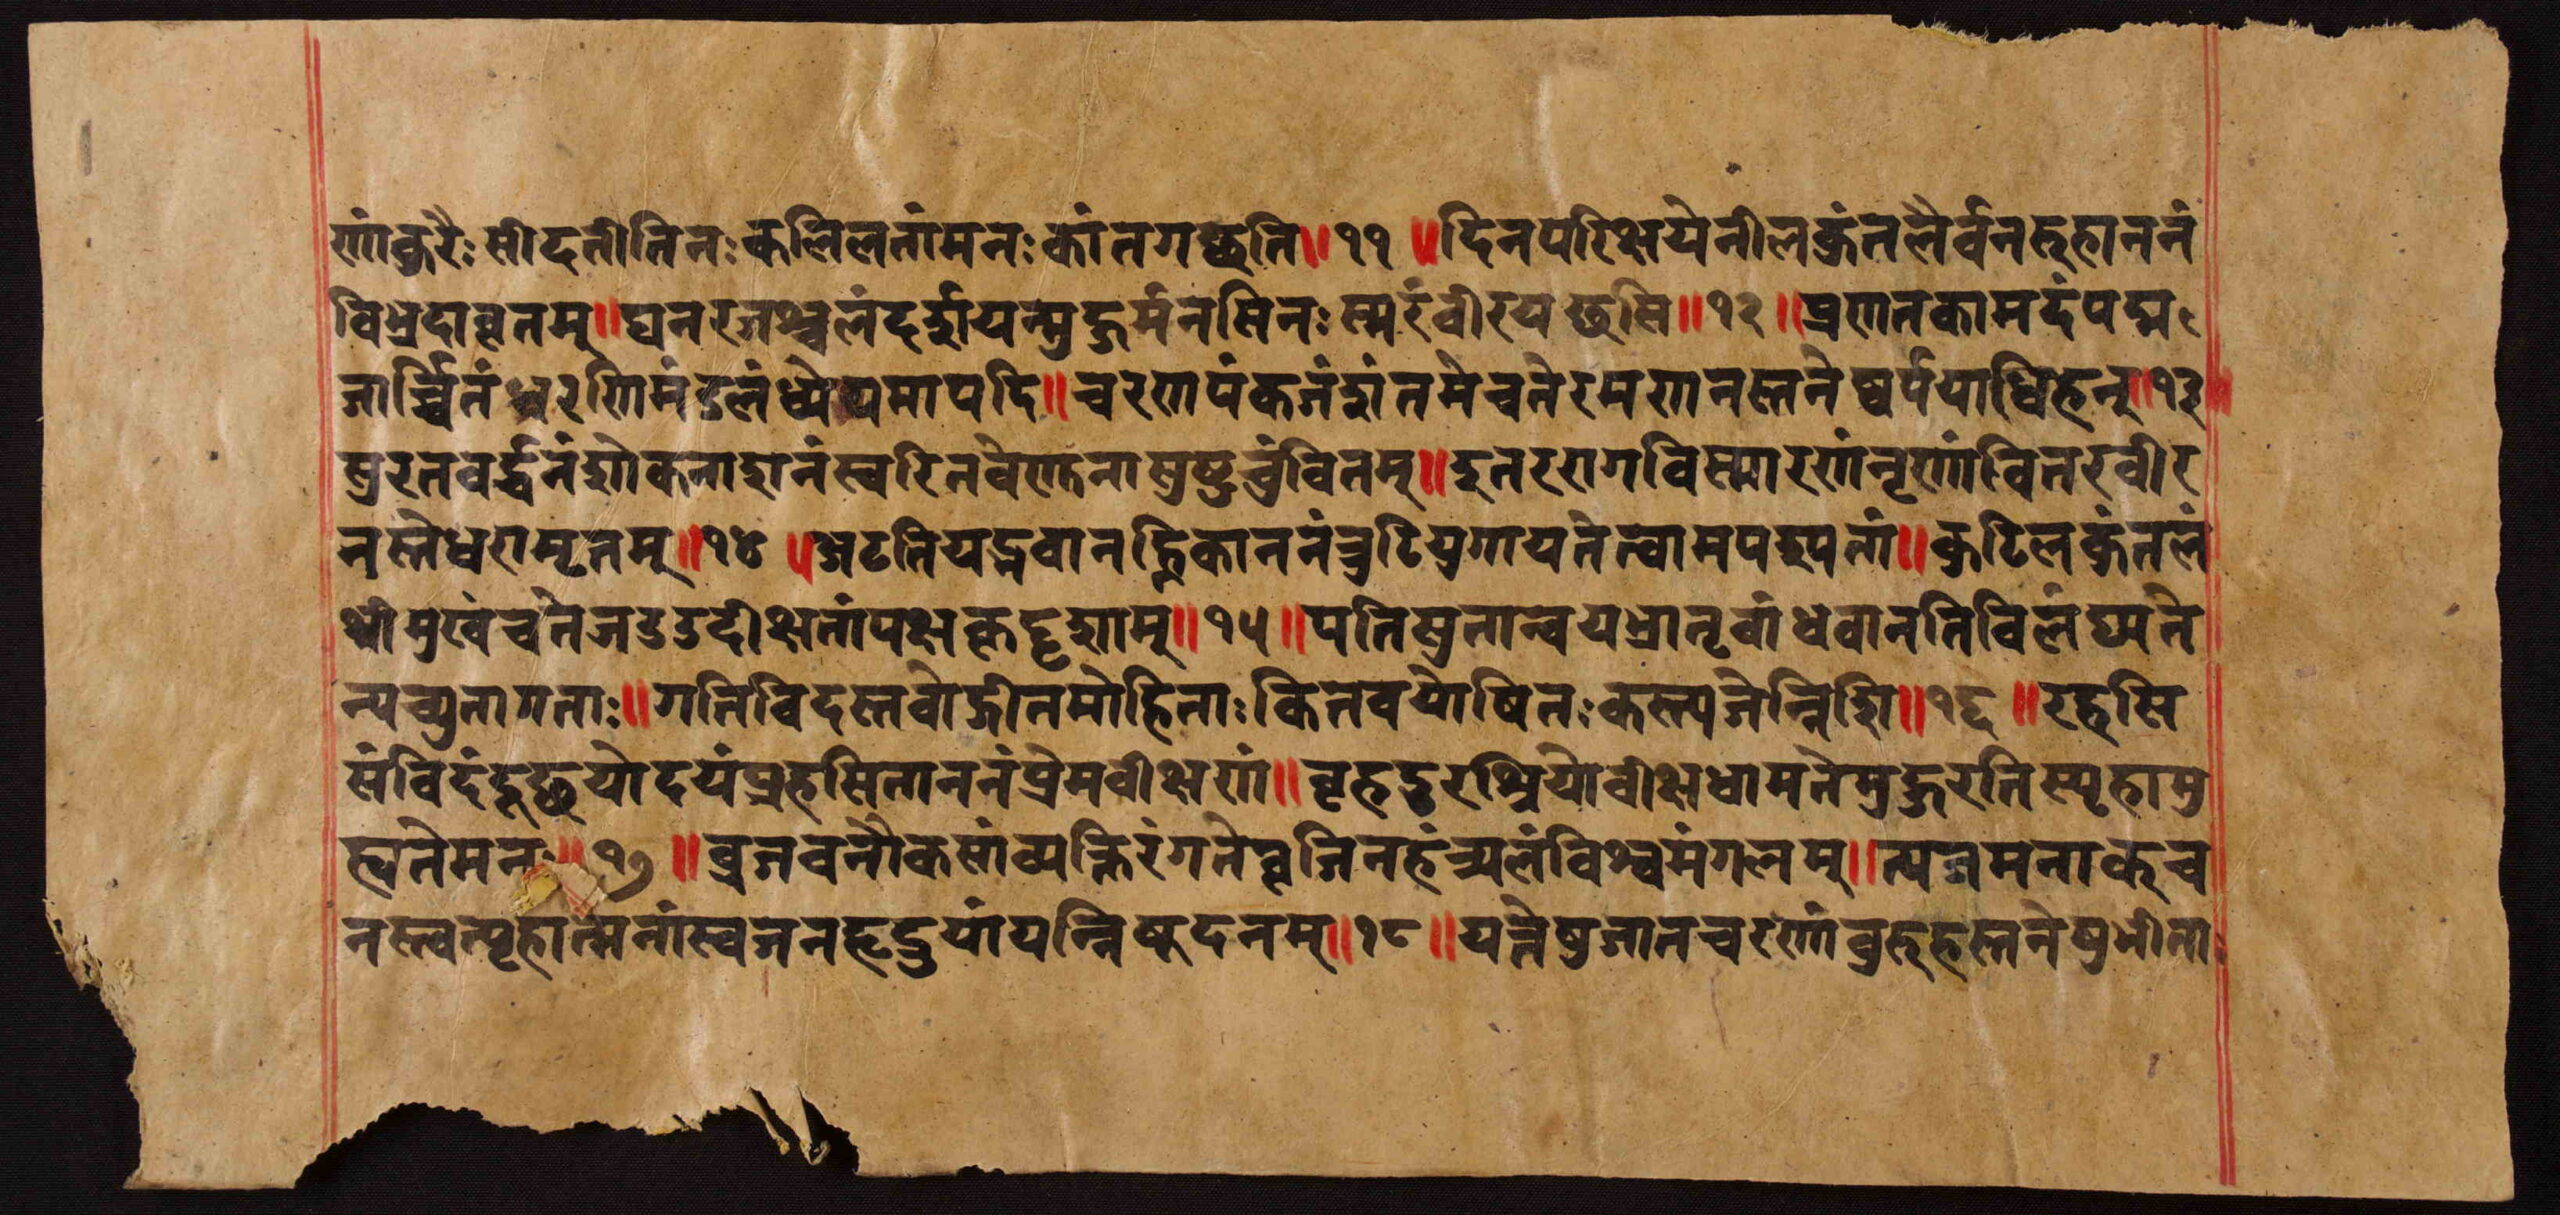 णांकुरैः सीदतीतिनः कलिलतांमनः कांतगच्छति॥११॥दिनपरिक्षयेनीलकुंतलैर्वनरुहाननं
विभ्रदावृतम्॥घनरजश्वलंदर्शयन्मुहुर्मनसिनः स्मरंवीरयच्छसि॥१२॥प्रणतकामदंपद्म
जार्च्चितंधरणिमंडलंध्येयमापदि॥चरणपंकजंशंतमेचतेरमणनस्तनेष्वर्पयाधिहन्॥१३॥
सुरतवर्द्धनंशोकनाशनंस्वरितवेणुनासुष्टुचुंवितम्॥इतररागविस्मारणंनृणांवितरवीर
नस्तेधरामृतम्॥१४॥अटतियद्भवानह्निकाननंत्रुटियुगायतेत्वामपश्यतां॥कुटिलकुंतलं
श्रीमुखंचतेजडउदीक्षतांपक्षकृद्दृशाम्॥१५॥पतिसुतान्वयभ्रातृवांधवानतिविलंघ्यते
न्त्यच्युतागताः॥गतिविदस्तवोद्गीतमोहिताः कितवयोषितः कस्त्यजेन्निशि॥१६॥रहसि
संविदंहृच्छयोदयंप्रहसिताननंप्रेमवीक्षणं॥वृहदुरश्रियोवीक्षधामतेमुहुरतिस्पृहामु
ह्यतेमनः॥१७॥व्रजवनौकसांव्यक्तिरंगतेवृजिनहंत्र्यलंविश्वमंगलम्॥त्यजमनाक्च
नस्त्वत्पृहात्मनांस्वजनहृद्रुयांयन्निषूदनम्॥१८॥यत्तेषुजातचरणांवुरुहस्तनेषुभीता